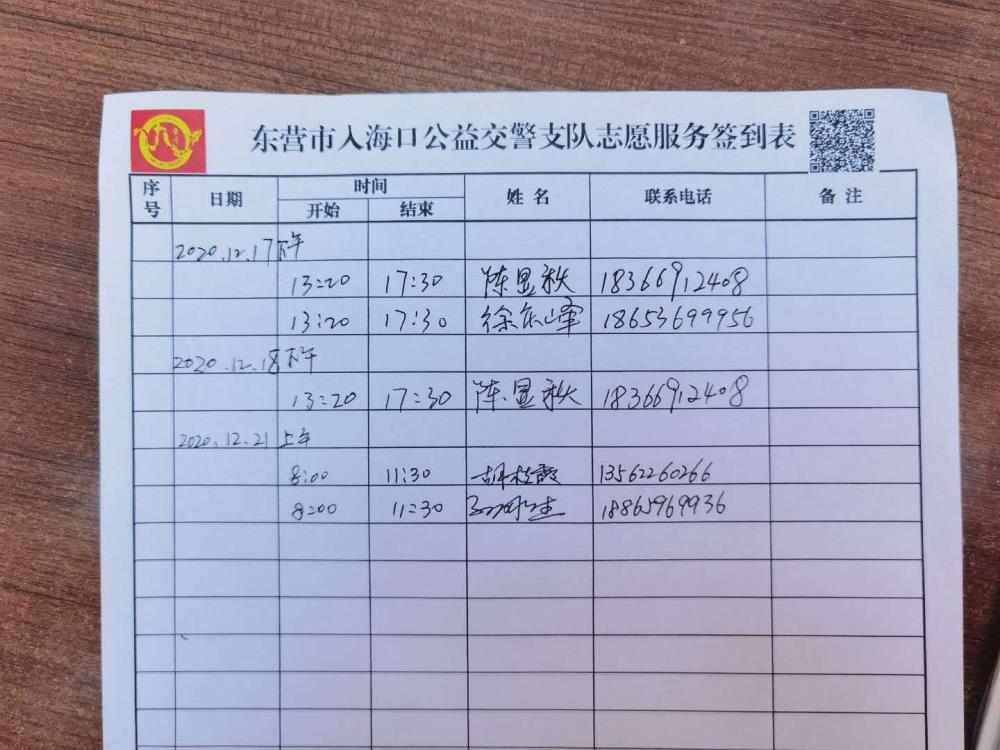 东营市入海口公益交警支队志愿服务签到表
序号 日期 时间 姓名 联系电话 备注
开始 结束
2020.12.17下午
13:20 17:30 陈显秋 18366912408
13:20 17:30 徐东峰 18653699956
2020.12.18下午
13:20 17:30 陈显秋 18366912408
2020.12.21上午
8:00 11:30 胡桂霞 13562260266
8:00 11:30 18865969936